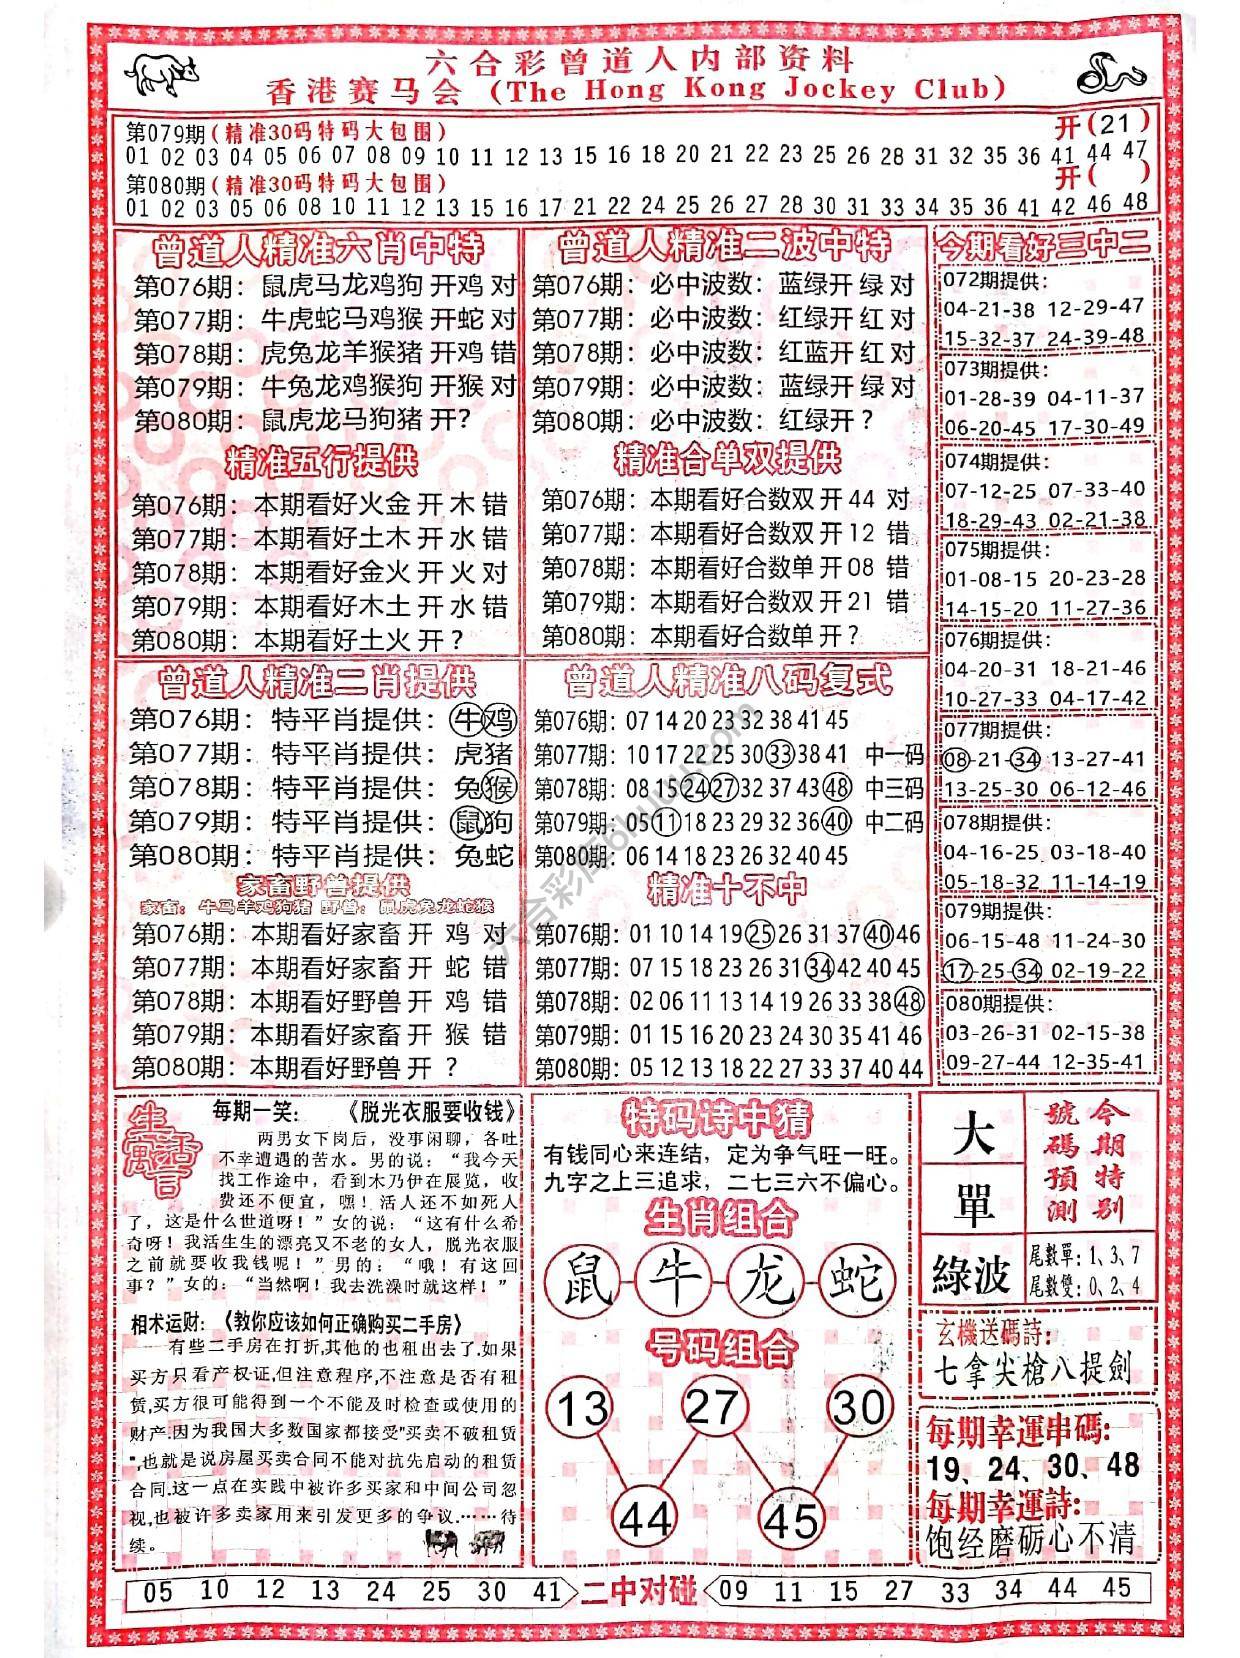 六合彩曾道人内部资料
香港赛马会 (The Hong Kong Jockey Club)
第079期(精准30码特码大包围) 开(21)
01 02 03 04 05 06 07 08 09 10 11 12 13 15 16 18 20 21 22 23 25 26 28 31 32 35 36 41 44 47
第080期(精准30码特码大包围) 开( )
01 02 03 05 06 08 10 11 12 13 15 16 17 21 22 24 25 26 27 28 30 31 33 34 35 36 41 42 46 48
曾道人精准六肖中特
第076期: 鼠虎马龙鸡狗 开鸡 对
第077期: 牛虎蛇马鸡猴 开蛇 对
第078期: 虎兔龙羊猴猪 开鸡 错
第079期: 牛兔龙鸡猴狗 开猴 对
第080期: 鼠虎龙马狗猪 开?
精准五行提供
第076期: 本期看好火金 开 木 错
第077期: 本期看好土木 开 水 错
第078期: 本期看好金火 开 火 对
第079期: 本期看好木土 开 水 错
第080期: 本期看好土火 开 ?
曾道人精准二波中特
第076期: 必中波数: 蓝绿开 绿 对
第077期: 必中波数: 红绿开 红 对
第078期: 必中波数: 红蓝开 红 对
第079期: 必中波数: 蓝绿开 绿 对
第080期: 必中波数: 红绿开 ?
精准合单双提供
第076期: 本期看好合数双 开 44 对
第077期: 本期看好合数双 开 12 错
第078期: 本期看好合数单 开 08 错
第079期: 本期看好合数双 开 21 错
第080期: 本期看好合数单 开?
今期看好三中二
072期提供:
04-21-38 12-29-47
15-32-37 24-39-48
073期提供:
01-28-39 04-11-37
06-20-45 17-30-49
074期提供:
07-12-25 07-33-40
18-29-43 02-21-38
075期提供:
01-08-15 20-23-28
14-15-20 11-27-36
076期提供:
04-20-31 18-21-46
10-27-33 04-17-42
077期提供:
08-21-34 13-27-41
13-25-30 06-12-46
078期提供:
04-16-25 03-18-40
05-18-32 11-14-19
079期提供:
06-15-48 11-24-30
17-25-34 02-19-22
080期提供:
03-26-31 02-15-38
09-27-44 12-35-41
曾道人精准二肖提供
第076期: 特平肖提供: 牛鸡
第077期: 特平肖提供: 虎猪
第078期: 特平肖提供: 兔猴
第079期: 特平肖提供: 鼠狗
第080期: 特平肖提供: 兔蛇
家畜野兽提供
家畜: 牛马羊鸡狗猪 野兽: 鼠虎兔龙蛇猴
第076期: 本期看好家畜 开 鸡 对
第077期: 本期看好家畜 开 蛇 错
第078期: 本期看好野兽 开 鸡 错
第079期: 本期看好家畜 开 猴 错
第080期: 本期看好野兽 开 ?
曾道人精准八码复式
第076期: 07 14 20 23 32 38 41 45
第077期: 10 17 22 25 30 33 38 41 中一码
第078期: 08 15 24 27 32 37 43 48 中三码
第079期: 05 11 18 23 29 32 36 40 中二码
第080期: 06 14 18 23 26 32 40 45
精准十不中
第076期: 01 10 14 19 25 26 31 37 40 46
第077期: 07 15 18 23 26 31 34 42 40 45
第078期: 02 06 11 13 14 19 26 33 38 48
第079期: 01 15 16 20 23 24 30 35 41 46
第080期: 05 12 13 18 22 27 33 37 40 44
六合彩库6huu.com
生活寓言
每期一笑: 《脱光衣服要收钱》
两男女下岗后，没事闲聊，各吐
不幸遭遇的苦水。男的说：“我今天
找工作途中，看到木乃伊在展览，收
费还不便宜，嘿！活人还不如死人
了，这是什么世道呀！”女的说：“这有什么希
奇呀！我活生生的漂亮又不老的女人，脱光衣服
之前就要收我钱呢！”男的：“哦！有这回
事？”女的：“当然啊！我去洗澡时就这样！”
相术运财: 《教你应该如何正确购买二手房》
有些二手房在打折,其他的也租出去了.如果
买方只看产权证,但注意程序,不注意是否有租
赁,买方很可能得到一个不能及时检查或使用的
财产.因为我国大多数国家都接受"买卖不破租赁
",也就是说房屋买卖合同不能对抗先启动的租赁
合同.这一点在实践中被许多买家和中间公司忽
视,也被许多卖家用来引发更多的争议.……待
续。
特码诗中猜
有钱同心来连结，定为争气旺一旺。
九字之上三追求，二七三六不偏心。
生肖组合
鼠-牛-龙-蛇
号码组合
13 27 30
44 45
大
單
綠波
今期特别
號碼預測
尾數單: 1、3、7
尾數雙: 0、2、4
玄機送碼詩:
七拿尖槍八提劍
每期幸運串碼:
19、24、30、48
每期幸運詩:
饱经磨砺心不清
05 10 12 13 24 25 30 41 二中对碰 09 11 15 27 33 34 44 45